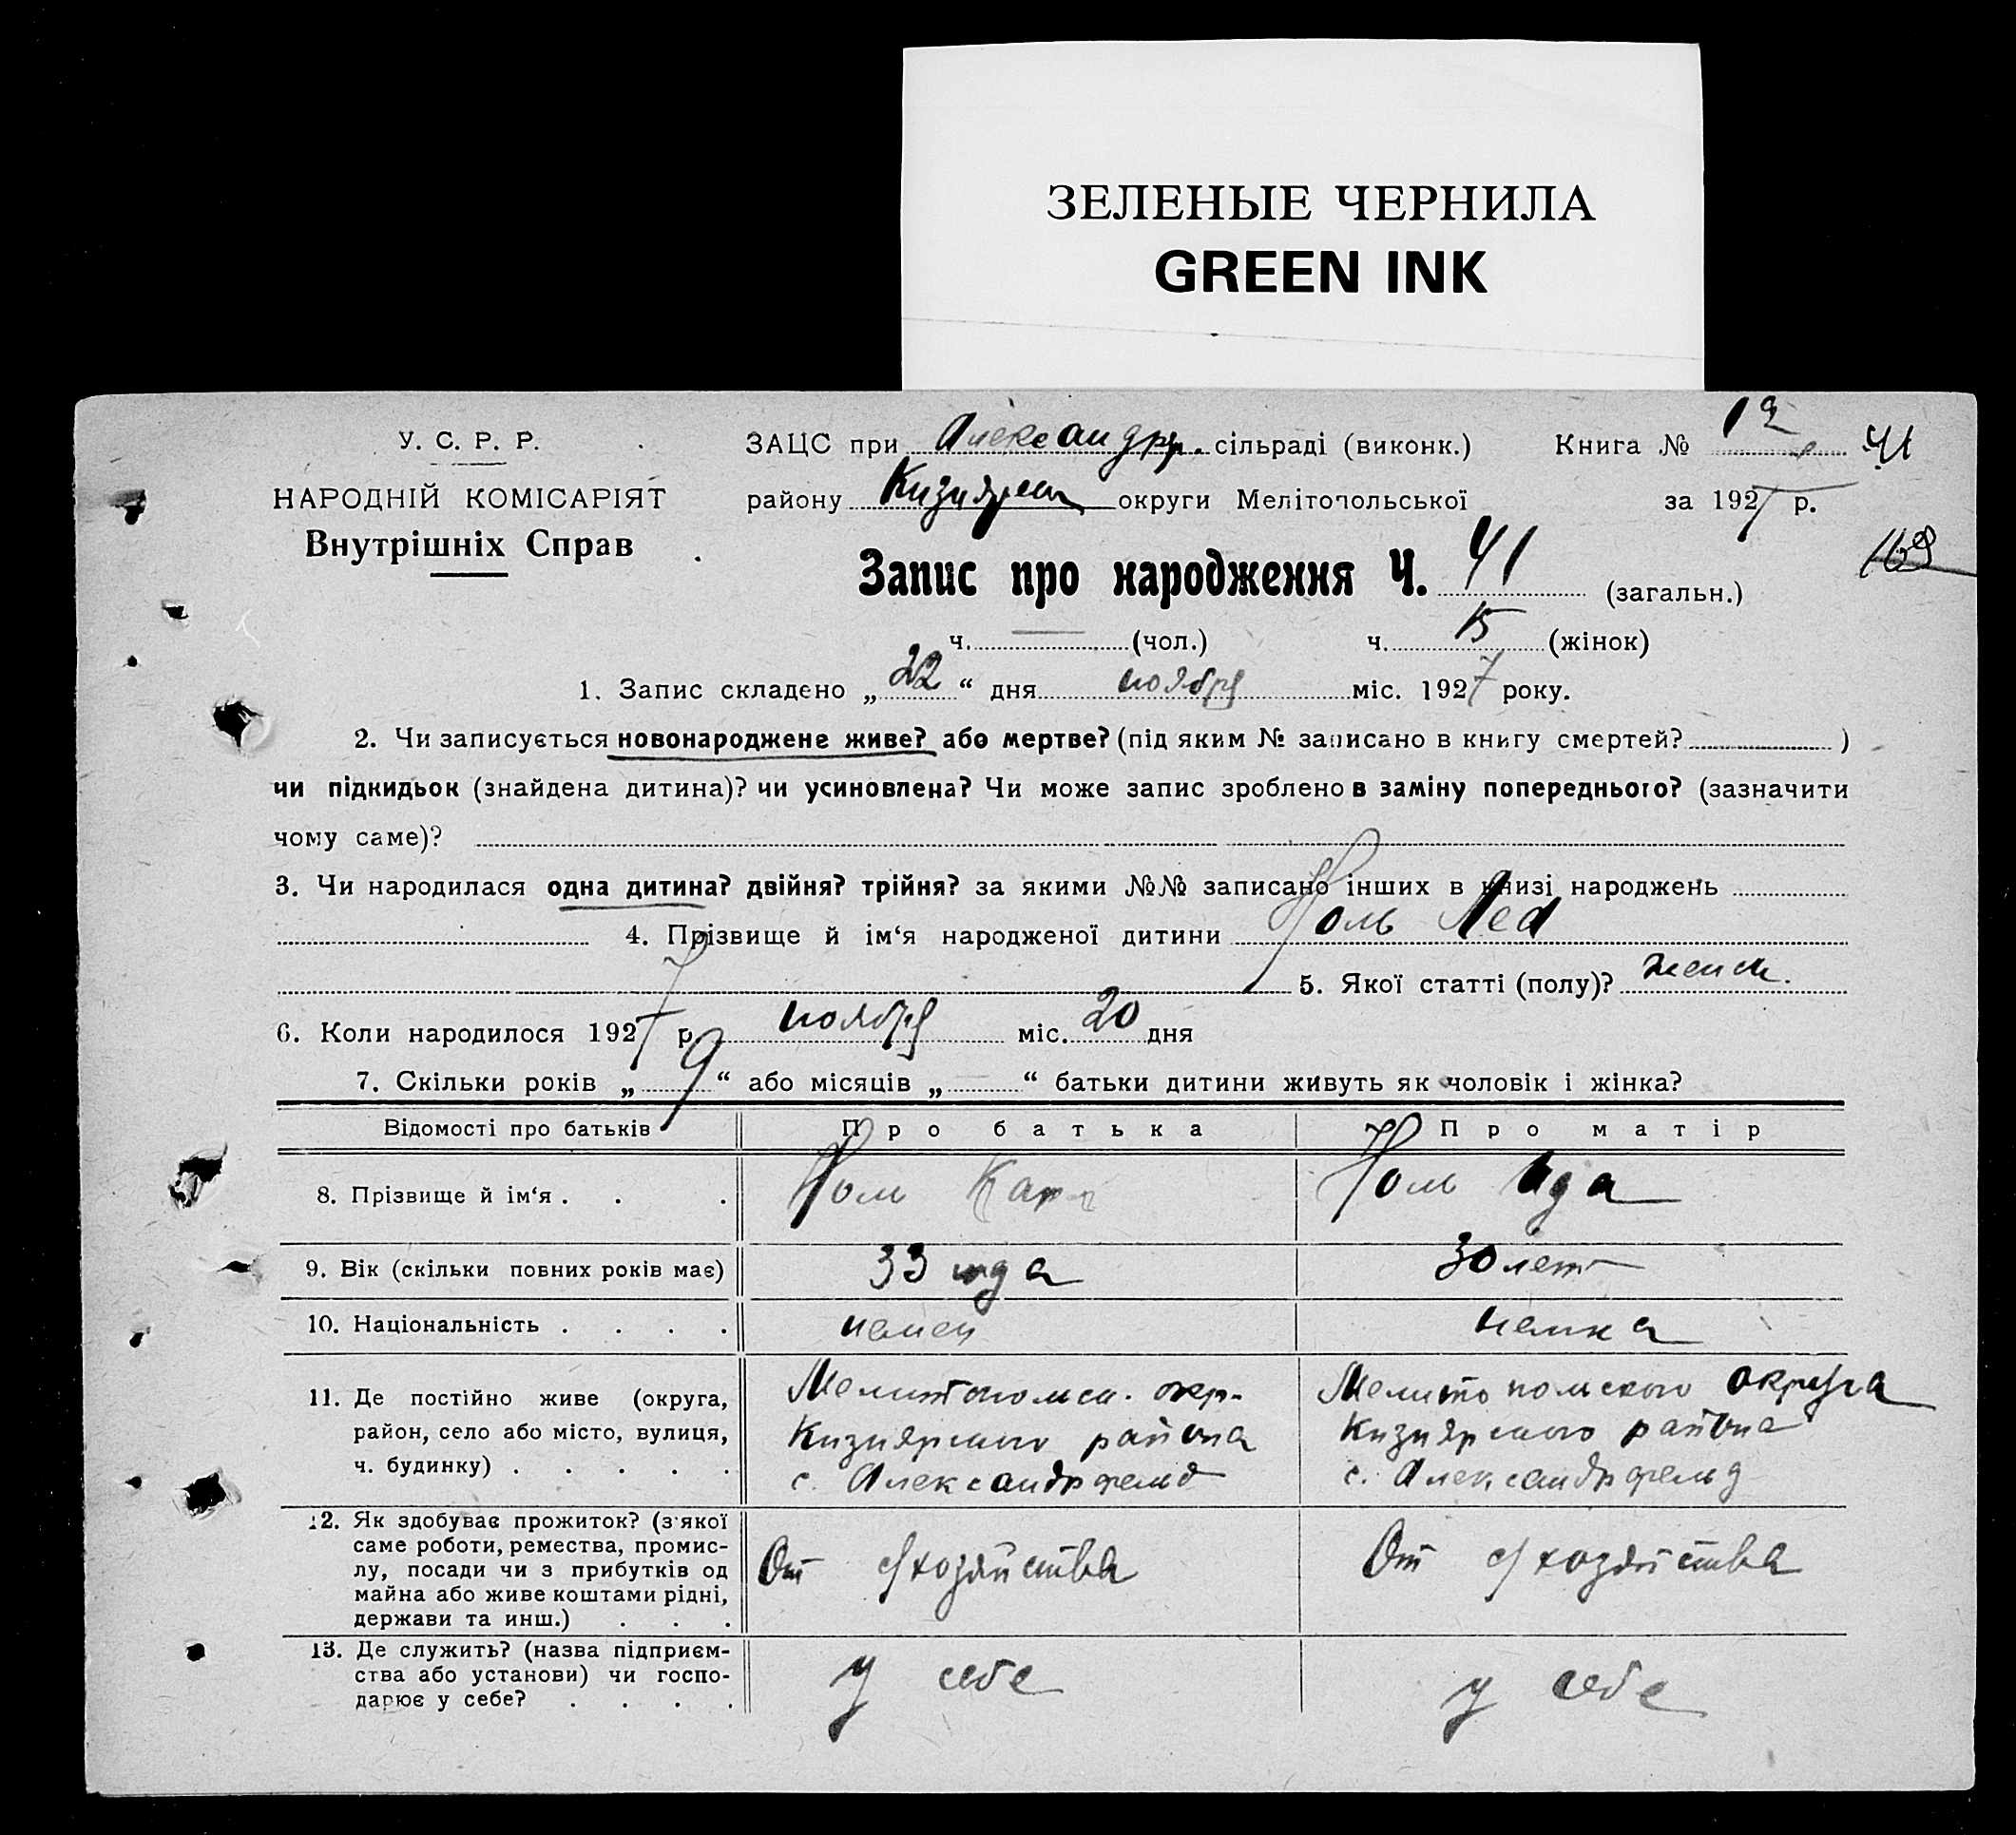 ЗЕЛЕНЫЕ ЧЕРНИЛА
GREEN INK
У. С. Р. Р.
НАРОДНІЙ КОМІСАРІЯТ
Внутрішніх Справ
ЗАЦС при Александрф. сільраді (виконк.)
Книга № 12 41
району Кизиярск округи Мелітопольської
за 1927 р.
Запис про народження Ч. 41 (загальн.)
169
ч. — (чол.) ч. 15 (жінок)
1. Запис складено „ 22 “ дня ноября міс. 1927 року.
2. Чи записується новонароджене живе? або мертве? (під яким № записано в книгу смертей? )
чи підкидьок (знайдена дитина)? чи усиновлена? Чи може запис зроблено в заміну попереднього? (зазначити
чому саме)?
3. Чи народилася одна дитина? двійня? трійня? за якими №№ записано інших в книзі народжень
4. Прізвище й ім‘я народженої дитини Ноль Леа
5. Якої статті (полу)? женск.
6. Коли народилося 1927 р. ноября міс. 20 дня
7. Скільки років „ 9 “ або місяців „ — “ батьки дитини живуть як чоловік і жінка?
Відомості про батьків Про батька Про матір
8. Прізвище й ім‘я . . . Ноль Карл Ноль Ида
9. Вік (скільки повних років має) 33 года 30 лет
10. Національність . . . . немец немка
11. Де постійно живе (округа,
район, село або місто, вулиця,
ч. будинку) . . . . .
Мелитопольск. окр.
Кизиярского района
с. Александрфельд
Мелитопольского округа
Кизиярского района
с. Александрфельд
12. Як здобуває прожиток? (з'якої
саме роботи, ремества, промис-
лу, посади чи з прибутків од
майна або живе коштами рідні,
держави та инш.) . . .
От с/хозяйства
От с/хозяйства
13. Де служить? (назва підприєм-
ства або установи) чи госпо-
дарює у себе? . . . .
у себе
у себе